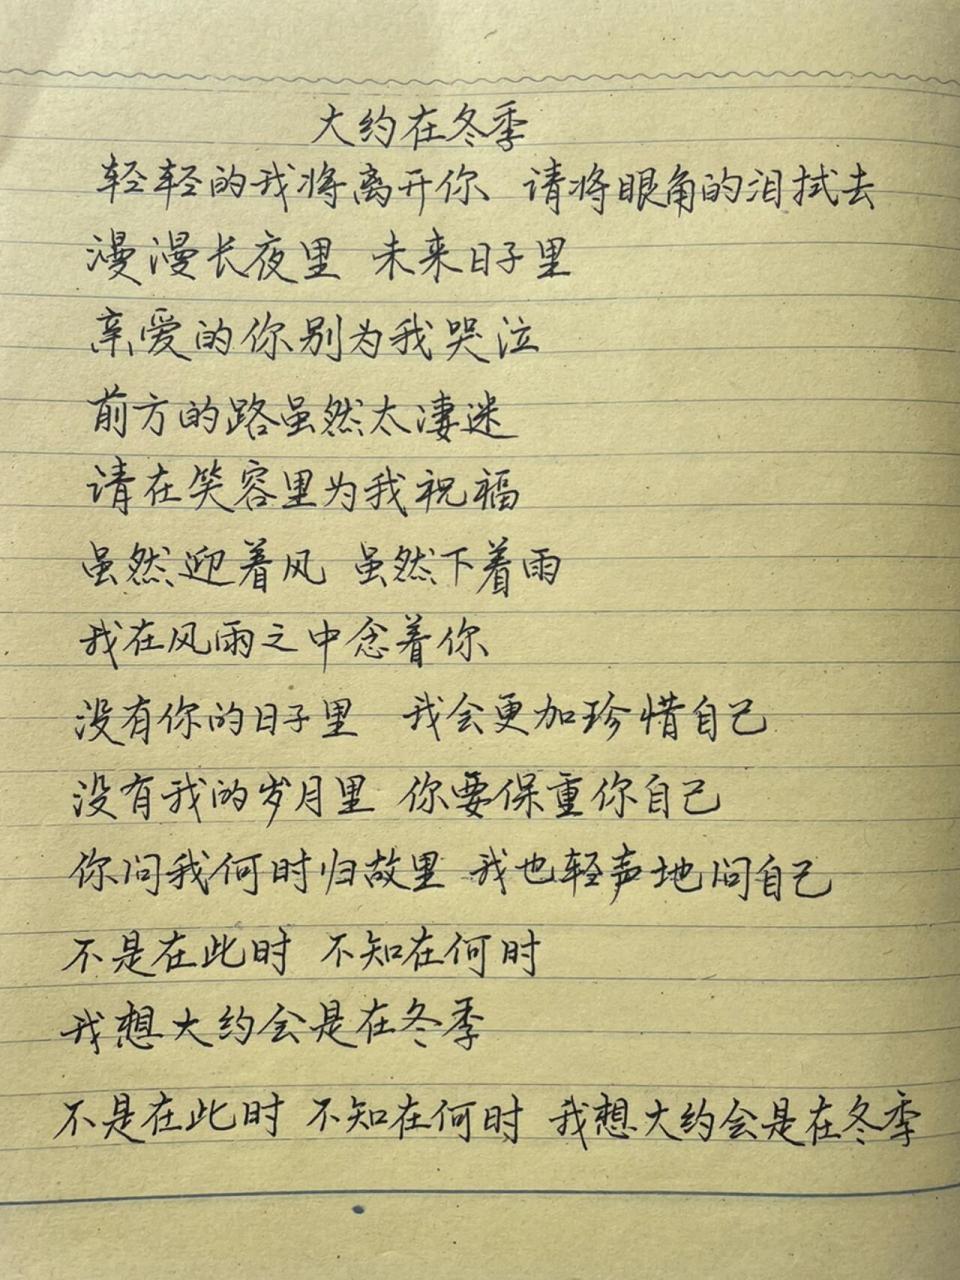 大约在冬季
轻轻的我将离开你 请将眼角的泪拭去
漫漫长夜里 未来日子里
亲爱的你别为我哭泣
前方的路虽然太凄迷
请在笑容里为我祝福
虽然迎着风 虽然下着雨
我在风雨之中念着你
没有你的日子里 我会更加珍惜自己
没有我的岁月里 你要保重你自己
你问我何时归故里 我也轻声地问自己
不是在此时 不知在何时
我想大约会是在冬季
不是在此时 不知在何时 我想大约会是在冬季